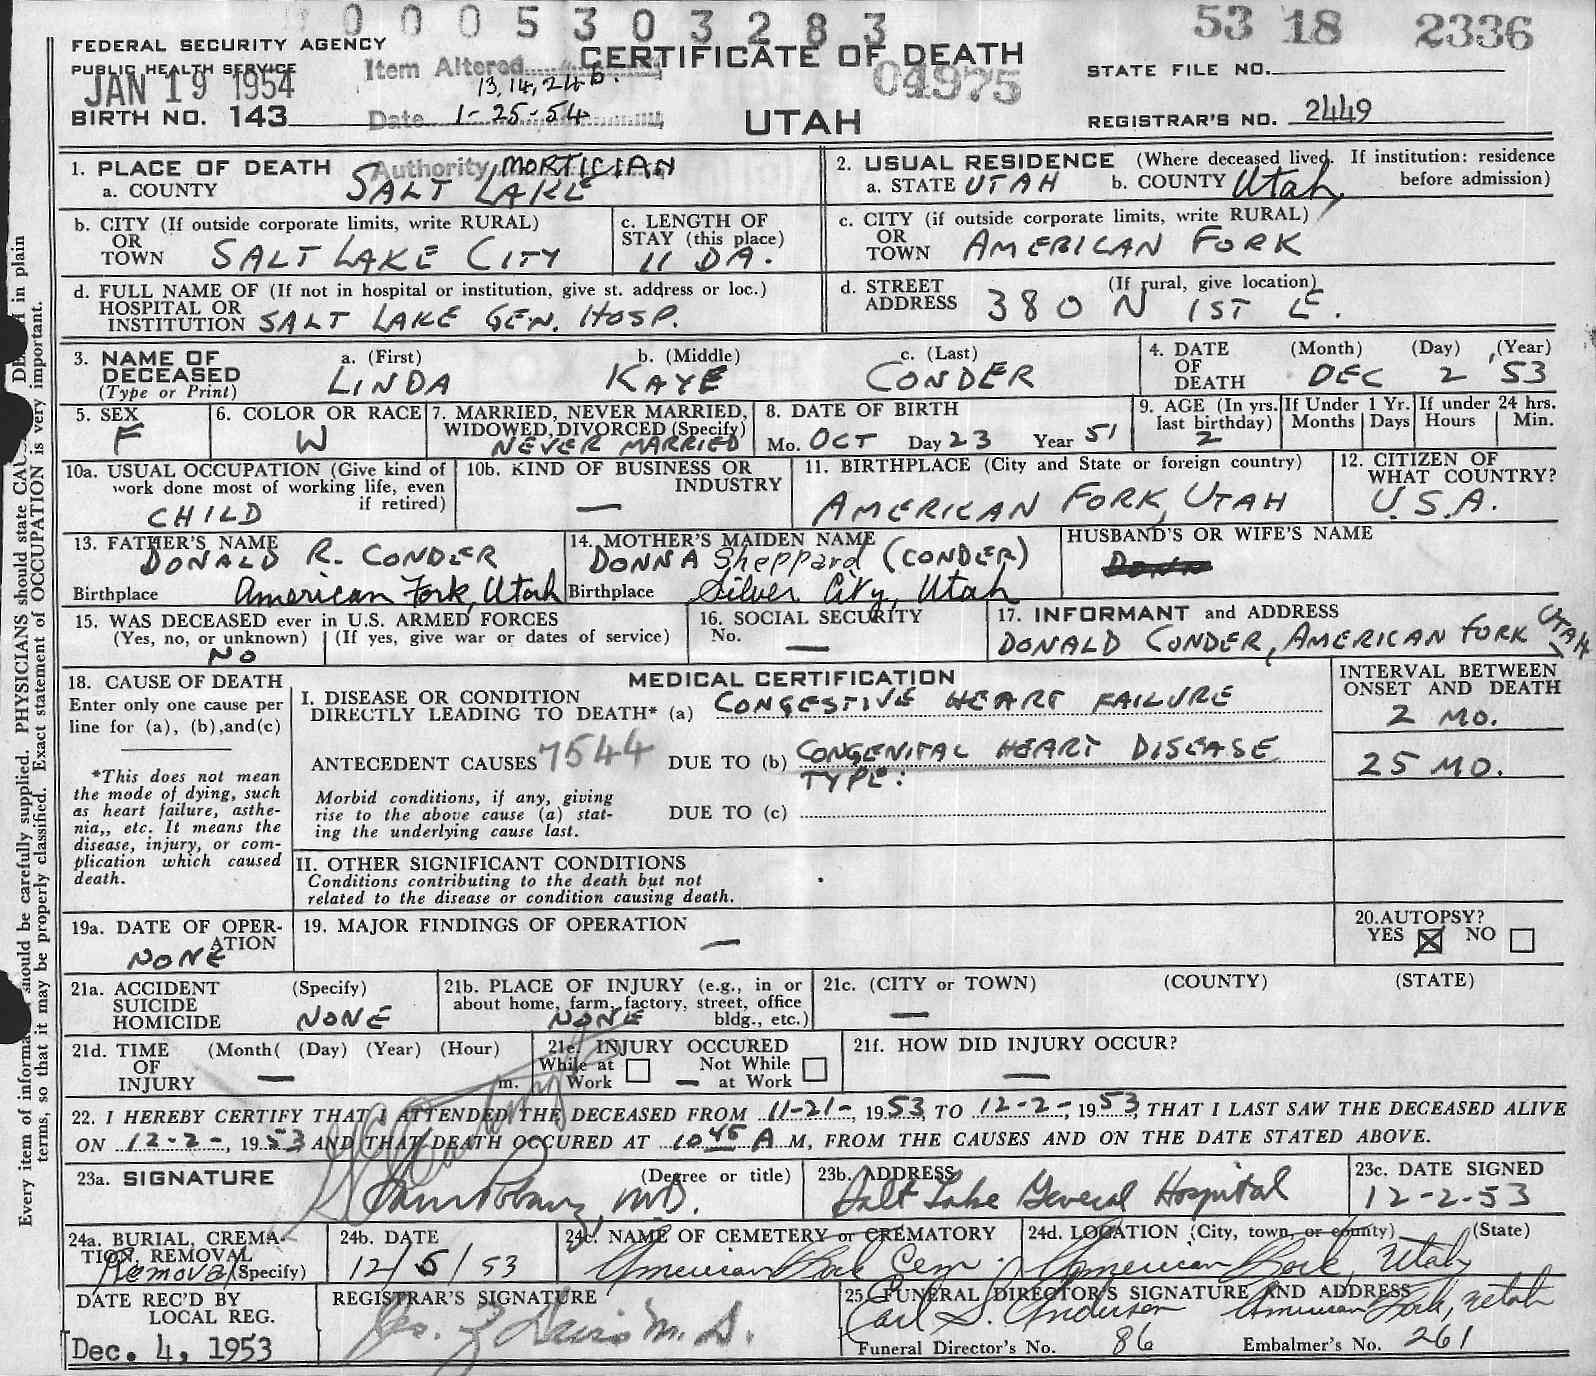 0005303283
53 18 2336
FEDERAL SECURITY AGENCY
PUBLIC HEALTH SERVICE
JAN 19 1954
Item Altered 13, 14, 24-b.
CERTIFICATE OF DEATH
04975
STATE FILE NO.
BIRTH NO. 143
Date 1-25-54
UTAH
REGISTRAR'S NO. 2449
Authority MORTICIAN
1. PLACE OF DEATH
a. COUNTY SALT LAKE
2. USUAL RESIDENCE (Where deceased lived. If institution: residence before admission)
a. STATE UTAH b. COUNTY Utah
b. CITY (If outside corporate limits, write RURAL)
OR
TOWN SALT LAKE CITY
c. LENGTH OF
STAY (this place)
11 DA.
c. CITY (if outside corporate limits, write RURAL)
OR
TOWN AMERICAN FORK
d. FULL NAME OF (If not in hospital or institution, give st. address or loc.)
HOSPITAL OR
INSTITUTION SALT LAKE GEN. HOSP.
d. STREET (If rural, give location)
ADDRESS 380 N 1ST E.
3. NAME OF
DECEASED
(Type or Print)
a. (First) b. (Middle) c. (Last)
LINDA KAYE CONDER
4. DATE
OF
DEATH
(Month) (Day) (Year)
DEC 2 53
5. SEX
F
6. COLOR OR RACE
W
7. MARRIED, NEVER MARRIED,
WIDOWED, DIVORCED (Specify)
NEVER MARRIED
8. DATE OF BIRTH
Mo. OCT Day 23 Year 51
9. AGE (In yrs.
last birthday)
2
If Under 1 Yr.
Months Days
If under 24 hrs.
Hours Min.
10a. USUAL OCCUPATION (Give kind of
work done most of working life, even
if retired)
CHILD
10b. KIND OF BUSINESS OR
INDUSTRY
—
11. BIRTHPLACE (City and State or foreign country)
AMERICAN FORK, UTAH
12. CITIZEN OF
WHAT COUNTRY?
U.S.A.
13. FATHER'S NAME
DONALD R. CONDER
Birthplace American Fork, Utah
14. MOTHER'S MAIDEN NAME
DONNA Sheppard (CONDER)
Birthplace Silver City, Utah
HUSBAND'S OR WIFE'S NAME
15. WAS DECEASED ever in U.S. ARMED FORCES
(Yes, no, or unknown) (If yes, give war or dates of service)
NO
16. SOCIAL SECURITY
No.
—
17. INFORMANT and ADDRESS
DONALD CONDER, AMERICAN FORK UTAH
18. CAUSE OF DEATH
Enter only one cause per
line for (a), (b), and (c)
*This does not mean
the mode of dying, such
as heart failure, asthe-
nia,, etc. It means the
disease, injury, or com-
plication which caused
death.
MEDICAL CERTIFICATION
I. DISEASE OR CONDITION
DIRECTLY LEADING TO DEATH* (a) CONGESTIVE HEART FAILURE
INTERVAL BETWEEN
ONSET AND DEATH
2 MO.
ANTECEDENT CAUSES 7544 DUE TO (b) CONGENITAL HEART DISEASE
TYPE:
25 MO.
Morbid conditions, if any, giving
rise to the above cause (a) stat-
ing the underlying cause last.
DUE TO (c)
II. OTHER SIGNIFICANT CONDITIONS
Conditions contributing to the death but not
related to the disease or condition causing death.
19a. DATE OF OPER-
ATION
NONE
19. MAJOR FINDINGS OF OPERATION
—
20. AUTOPSY?
YES ☒ NO ☐
21a. ACCIDENT (Specify)
SUICIDE
HOMICIDE NONE
21b. PLACE OF INJURY (e.g., in or
about home, farm, factory, street, office
bldg., etc.)
NONE
21c. (CITY or TOWN) (COUNTY) (STATE)
—
21d. TIME (Month( (Day) (Year) (Hour)
OF
INJURY — m.
21e. INJURY OCCURED
While at Work ☐ Not While at Work ☐
—
21f. HOW DID INJURY OCCUR?
—
22. I HEREBY CERTIFY THAT I ATTENDED THE DECEASED FROM 11-21-, 1953, TO 12-2-, 1953, THAT I LAST SAW THE DECEASED ALIVE
ON 12-2-, 1953 AND THAT DEATH OCCURED AT 10 45 A M, FROM THE CAUSES AND ON THE DATE STATED ABOVE.
23a. SIGNATURE (Degree or title)
M.D.
23b. ADDRESS
Salt Lake General Hospital
23c. DATE SIGNED
12-2-53
24a. BURIAL, CREMA-
TION, REMOVAL
Removal (Specify)
24b. DATE
12/5/53
24c. NAME OF CEMETERY or CREMATORY
American Fork Cem.
24d. LOCATION (City, town, or county) (State)
American Fork, Utah
DATE REC'D BY
LOCAL REG.
Dec. 4, 1953
REGISTRAR'S SIGNATURE
M. D.
25. FUNERAL DIRECTOR'S SIGNATURE AND ADDRESS
Carl S. Anderson American Fork, Utah
Funeral Director's No. 86 Embalmer's No. 261
Every item of should be carefully supplied. PHYSICIANS should state in plain
terms, so that it may be properly classified. Exact statement of OCCUPATION is very important.